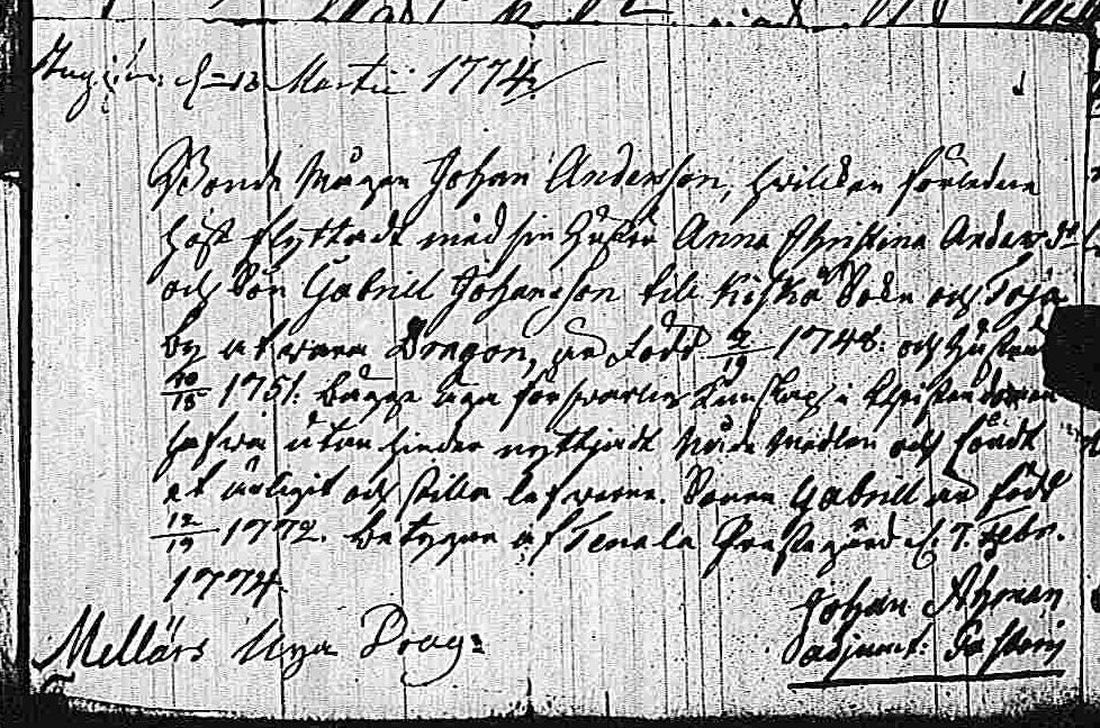 Ingifvin d. 13 Martii 1774.
Bonde Mågen Johan Andersson, hwilcken förledne
höst flyttadt med sin hustru Anna Christina Anders dr
och Son Gabriell Johansson till Kisko Sokn och Toja
by at wara Dragon, är född 9/19 1748. och hustrun
10/18 1751. bägge äga förswarlig kunskap i Christendomen
hafwa utan hinder nyttjadt Nåde Medlen och fördt
et ärligit och stilla lefwerne. Sonen Gabriell är född
12/19 1772. betygar af Tenala Prestegård d. 7. Febr.
1774.
Johan Ahoman
adjunct: Pastoris
Mellärs Nya Drag: